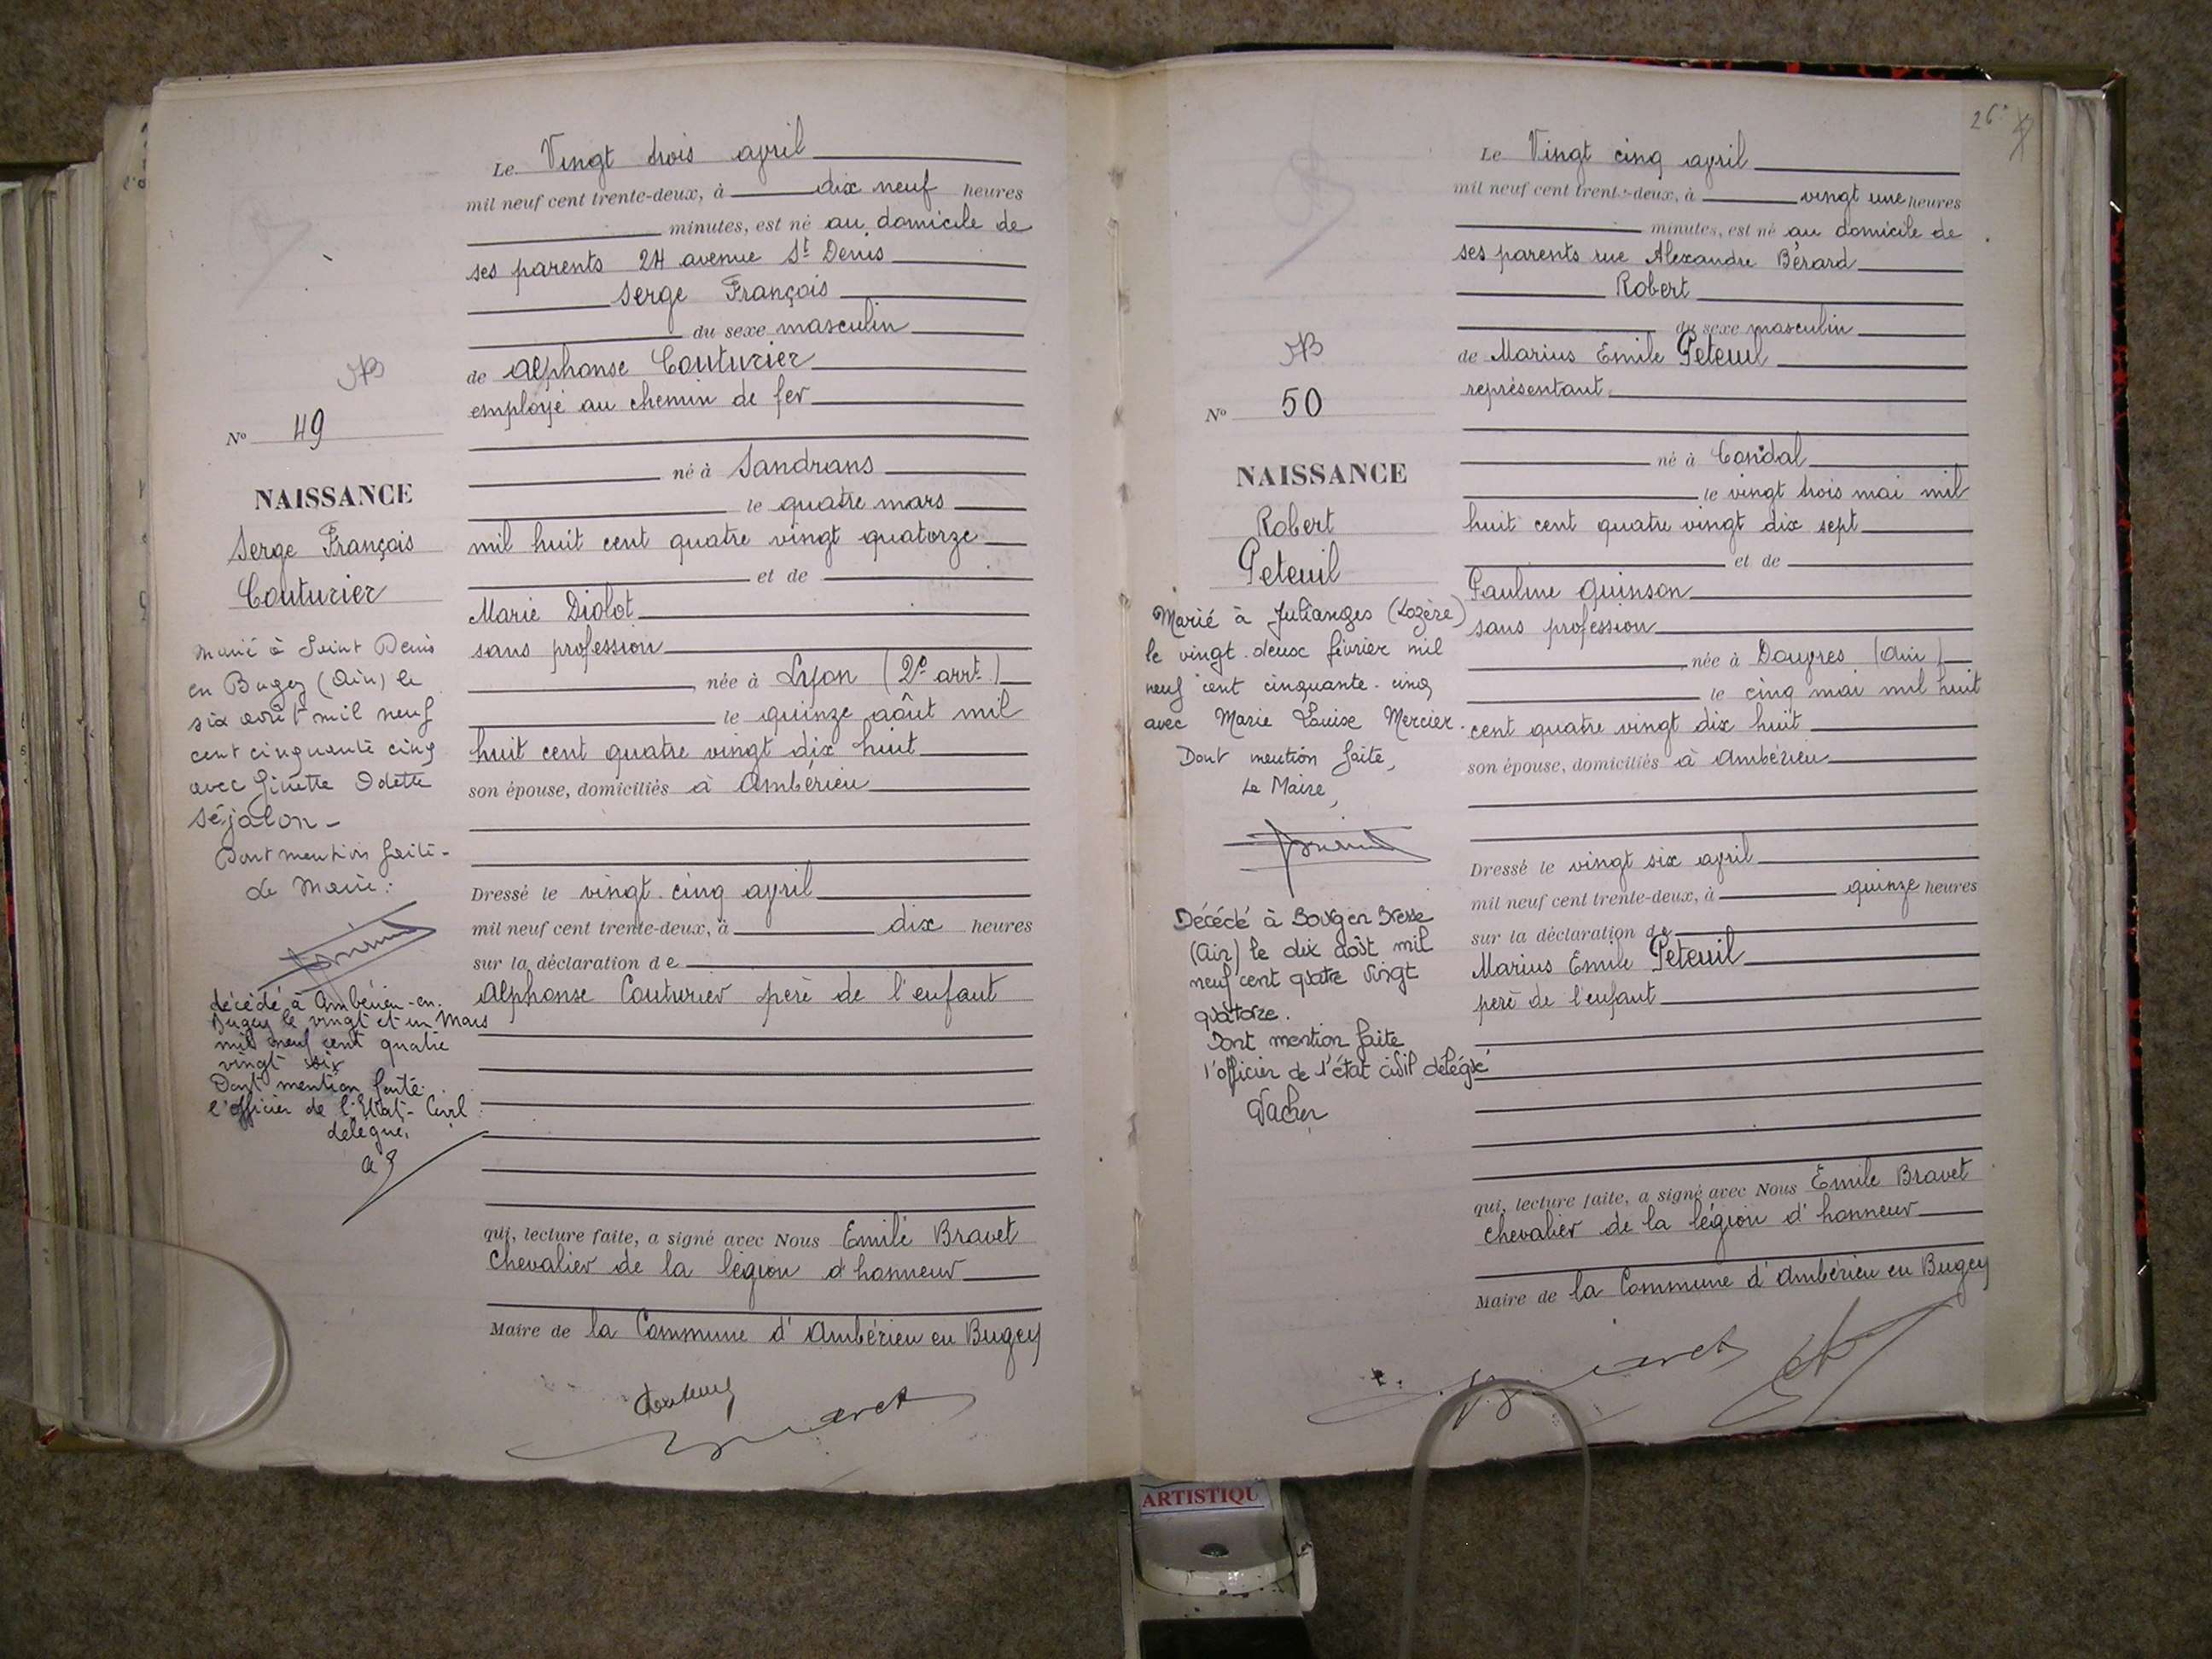 Le Vingt trois avril
mil neuf cent trente-deux, à dix neuf heures
minutes, est né au domicile de
ses parents 24 avenue St Denis
Serge François
du sexe masculin
de Alphonse Couturier
employé au chemin de fer
né à Sandrans
le quatre mars
mil huit cent quatre vingt quatorze
et de
Marie Diolot
sans profession
née à Lyon (2e arrt.)
le quinze août mil
huit cent quatre vingt dix huit
son épouse, domiciliés à Ambérieu
Dressé le vingt cinq avril
mil neuf cent trente-deux, à dix heures
sur la déclaration de
Alphonse Couturier père de l'enfant
qui, lecture faite, a signé avec Nous Emile Bravet
Chevalier de la légion d'honneur
Maire de la Commune d'Ambérieu en Bugey
No 49
NAISSANCE
Serge François
Couturier
Marié à Saint Denis
en Bugey (Ain) le
six août mil neuf
cent cinquante cinq
avec Ginette Odette
Séjalon -
Dont mention faite -
Le Maire :
décédé à Ambérieu-en-
Bugey le vingt et un Mars
mil neuf cent quatre
vingt six
Dont mention faite.
l'officier de l'Etat-Civil
délégué,
26
Le Vingt cinq avril
mil neuf cent trente-deux, à vingt une heures
minutes, est né au domicile de
ses parents rue Alexandre Bérard
Robert
du sexe masculin
de Marius Emile Peteuil
représentant
né à Condal
le vingt trois mai mil
huit cent quatre vingt dix sept
et de
Pauline Quinson
sans profession
née à Douvres (Ain)
le cinq mai mil huit
cent quatre vingt dix huit
son épouse, domiciliés à Ambérieu
Dressé le vingt six avril
mil neuf cent trente-deux, à quinze heures
sur la déclaration de
Marius Emile Peteuil
père de l'enfant
qui, lecture faite, a signé avec Nous Emile Bravet
chevalier de la légion d'honneur
Maire de la Commune d'Ambérieu en Bugey
No 50
NAISSANCE
Robert
Peteuil
Marié à Julianges (Lozère)
le vingt-deux février mil
neuf cent cinquante-cinq
avec Marie Louise Mercier.
Dont mention faite,
Le Maire,
Décédé à Bourg en Bresse
(Ain) le dix août mil
neuf cent quatre vingt
quatorze.
Dont mention faite
l'officier de l'état civil délégué
ARTISTIQU